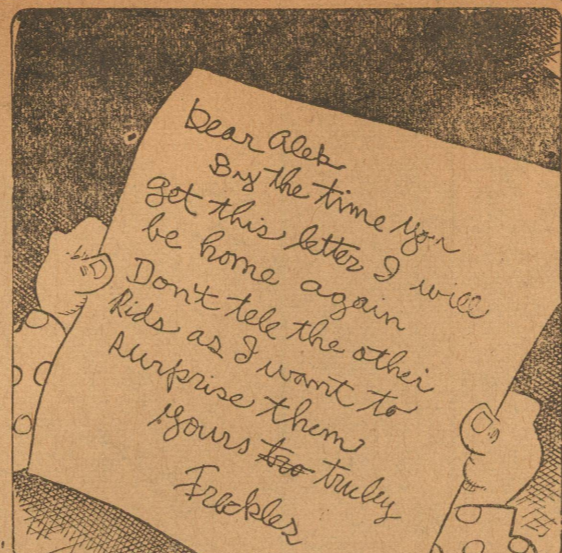 Dear Alek
By the time you
get this letter I will
be home again
Don't tell the other
Kids as I want to
surprise them
yours truley
Freckles